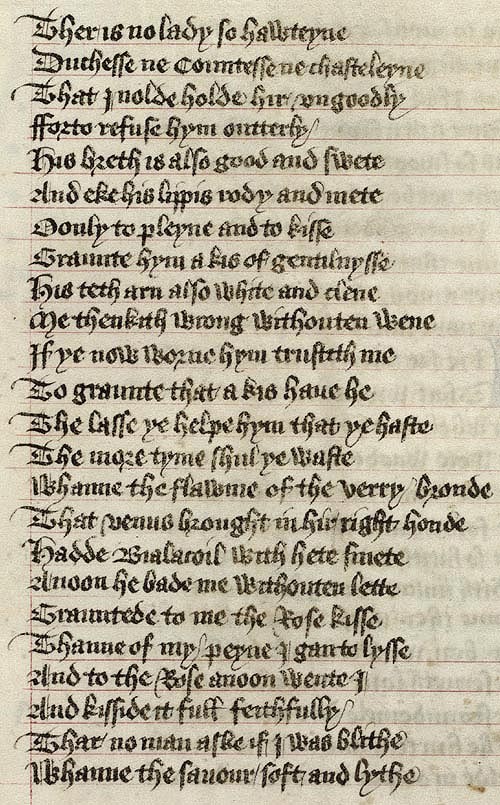 Ther is no lady so hawteyne
Duchesse ne Countesse ne chasteleyne
That I nolde holde hir vngoodly
fforto refuse hym outterly
His breth is also good and swete
And eke his lippis rody and mete
Oonly to pleyne and to kisse
Graunte hym a kis of gentilnysse
His teth arn also white and clene
Me thenkith wrong withouten wene
If ye now worne hym trustith me
To graunte that a kis haue he
The lasse ye helpe hym that ye haste
The more tyme shul ye waste
Whanne the flawme of the verry bronde
That venus brought in hir right honde
Hadde Bialacoil with hete smete
Anoon he bade me withouten lette
Grauntede to me the Rose kisse
Thanne of my peyne I gan to lysse
And to the Rose anoon wente I
And kisside it full feithfully
Thar no man aske if I was blithe
Whanne the sauour soft and lythe